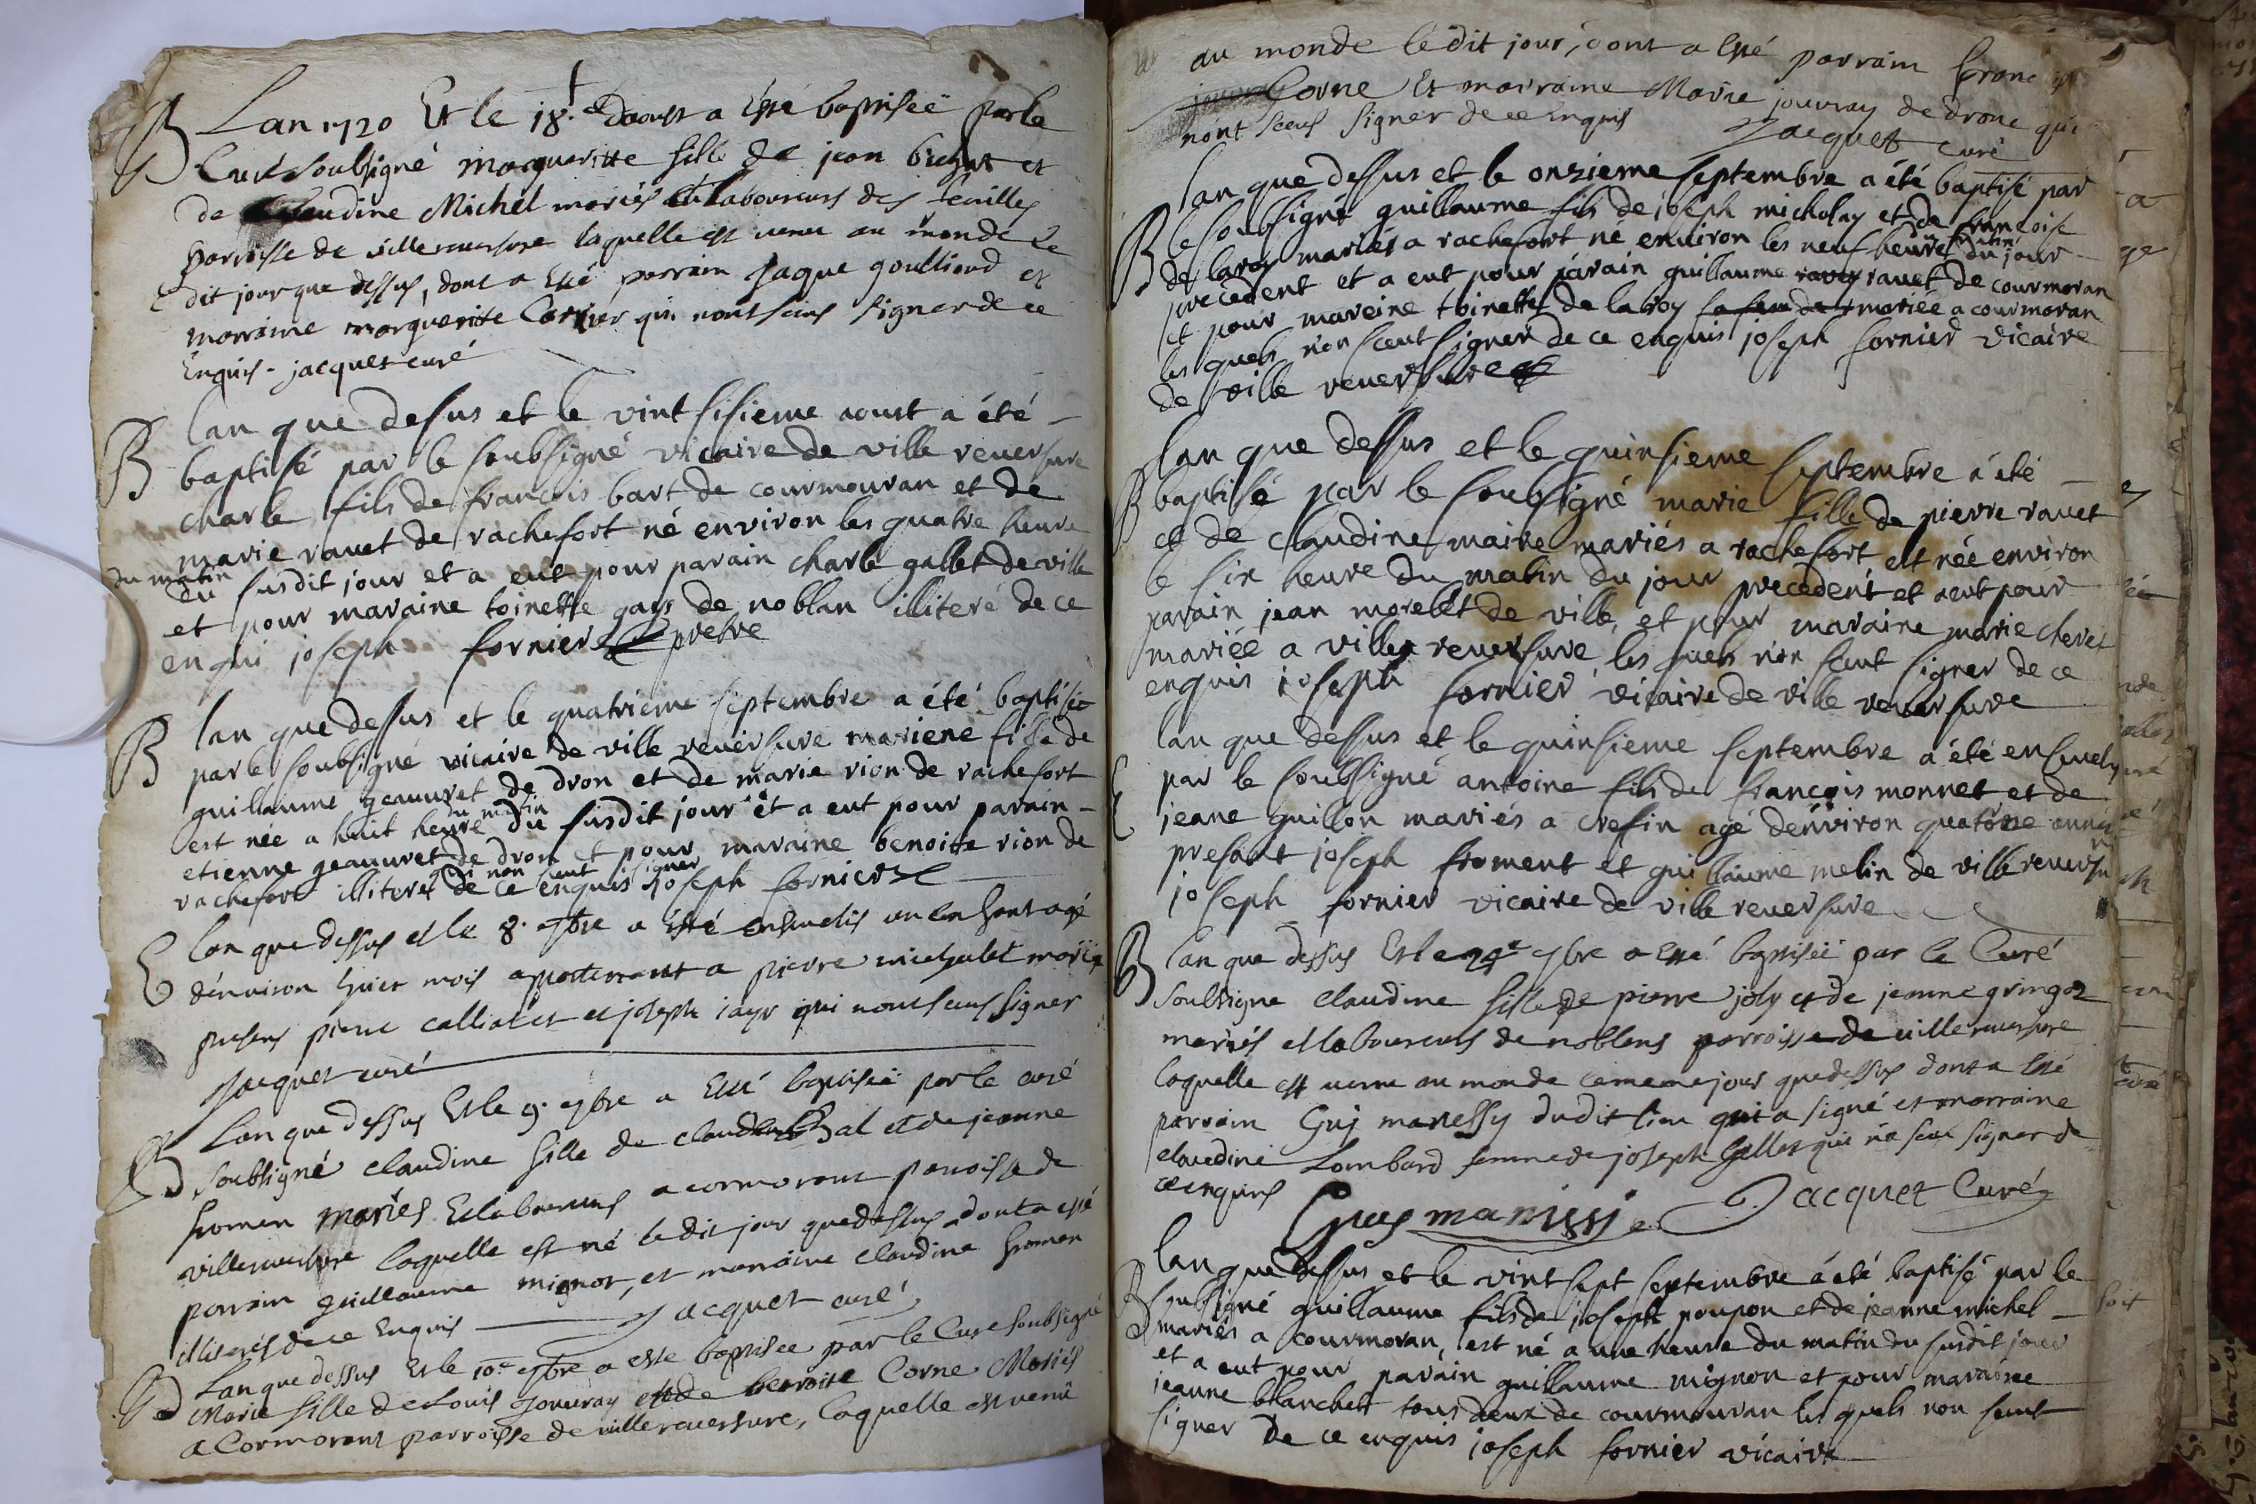 B Lan 1720 Et le 18.e daoust a Esté baptisée par le
Curé soubsigné margueritte fille de jean
de Claudine Michel mariés et laboureurs des feuilles
parroisse de villereversure laquelle est venu au monde le
dit jour que dessus, dont a Esté parrain Jaque goulliard et
marraine marguerite Carrier qui nont sceus signer de ce
Enquis - jacquet curé
B lan que desus et le vint sisieme aoust a été
baptisé par le soubsigné vicaire de ville reversure
charle fils de francois bart de courmouran et de
marie ravet de rachefort né environ les quatre heure
du matin
du susdit jour et a eut pour parain charle gallet de ville
et pour maraine toinette gays de noblan illiteré de ce
enqui joseph fornier prebre
B lan que dessus et le quatrieme septembre a été baptisée
par le soubsigné vicaire de ville reversure mariene fille de
guillaume geauvret de dron et de marie rion de rachefort
est née a huit heure du matin du susdit jour et a eut pour parain
etienne geauvret de dron et pour maraine benoite rion de
rachefort illiteret qui non seut signer de ce enquis joseph fornier
E lan que dessus et le 8. 7bre a Esté ensevelis un enfant agé
denviron huict mois appartenant a pierre micholet mariés
presens pierre calliat et joseph jayr qui nont sceus signer
Jacquet curé
B Lan que dessus Et le 9. 7bre a Esté baptisée par le curé
soubsigné claudine fille de claude Bal et de jeanne
fromen mariés Et laboureurs a cormorant parroisse de
villereversure laquelle est né le dit jour que dessus dont a esté
parrain guillaume mignot, et marraine claudine fromen
illiterés de ce Enquis Jacquet curé
B Lan que dessus Et le 10.e 7bre a esté baptisée par le Curé soubsigné
Marie fille de Louis Jouvray et de benoite Corne Mariés
a Cormorant parroisse de villereversure, laquelle est venü
au monde le dit jour, dont a Esté parrain franc
Corne Et marraine Marie jouvray de drone qui
nont sceus signer de ce Enquis Jacquet curé
B lan que dessus et le onzieme septembre a été baptisé par
le soubsigné guillaume fils de joseph micholay et de francoise
de laroy mariés a rachefort né environ les neuf heure du matin du jour
precedent et a eut pour parain guillaume ravet de courmoran
et pour mareine toinette de laroy mariee a courmoran
les quels non sceut signer de ce enquis joseph fornier vicaire
de ville reversure
B lan que dessus et le quinsieme septembre a été
baptisé par le soubsigné marie fille de pierre ravet
et de claudine maire mariés a rachefort est née environ
le six heure du matin du jour precedent et a eut pour
parain jean morellet de ville, et pour maraine marie cheret
mariée a ville reversure les quels non seut signer de ce
enquis joseph fornier vicaire de ville reversure
E lan que dessus et le quinsieme septembre a été ensevely
par le soubsigné antoine fils de francois monnet et de
jeane guillon mariés a crefin agé denviron quatorse annee
presant joseph froment et guillaume melin de ville reversure
joseph fornier vicaire de ville reversure
B lan que dessus Et le 24e 7bre a Esté baptisée par le Curé
soubsigne claudine fille de pierre joly et de jeanne gringoz
mariés et laboureurs de noblens parroisse de villereversure
laquelle est venue au monde ce meme jour que dessus dont a Esté
parrain Guy manessy dudit lieu qui a signé et marraine
claudine Lombard femme de joseph Gallet qui na sceu signer de
ce enquis Jacquet Curé
Guy manissi
B lan que dessus et le vint sept septembre a été baptisé par le
soubsigné guillaume fils de joseph poupon et de jeanne michel
mariés a courmoran, est né a une heure du matin du susdit jour
et a eut pour parain guillaume mignon et pour maraine
jeanne blanchet tous deux de courmouran les quels non seut
signer de ce enquis joseph fornier vicaire